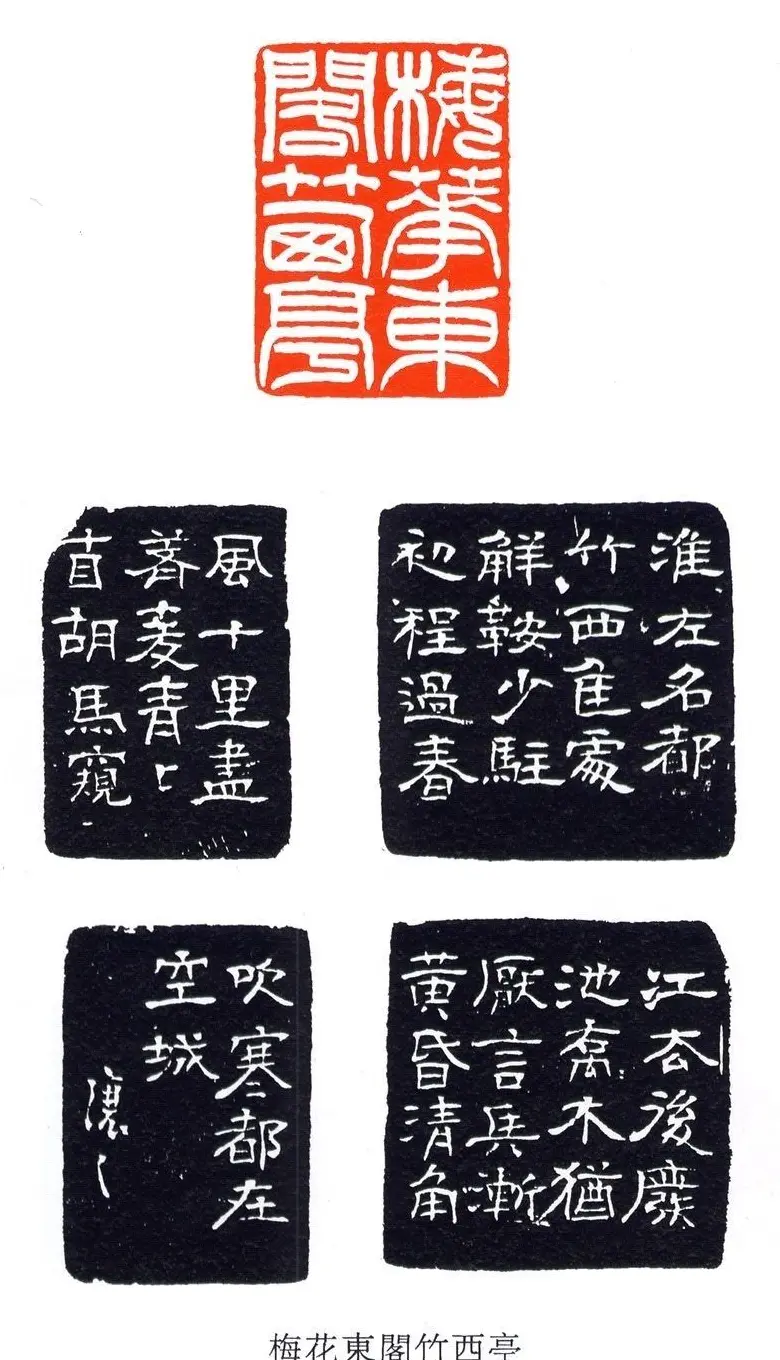 梅華東
閣竹西亭
淮左名都
竹西隹處
解鞍少駐
初程過春
風十里盡
薺麥青〻
自胡馬窺
江去後廢
池喬木猶
厭言兵漸
黃昏清角
吹寒都在
空城
讓之
梅花東閣竹西亭